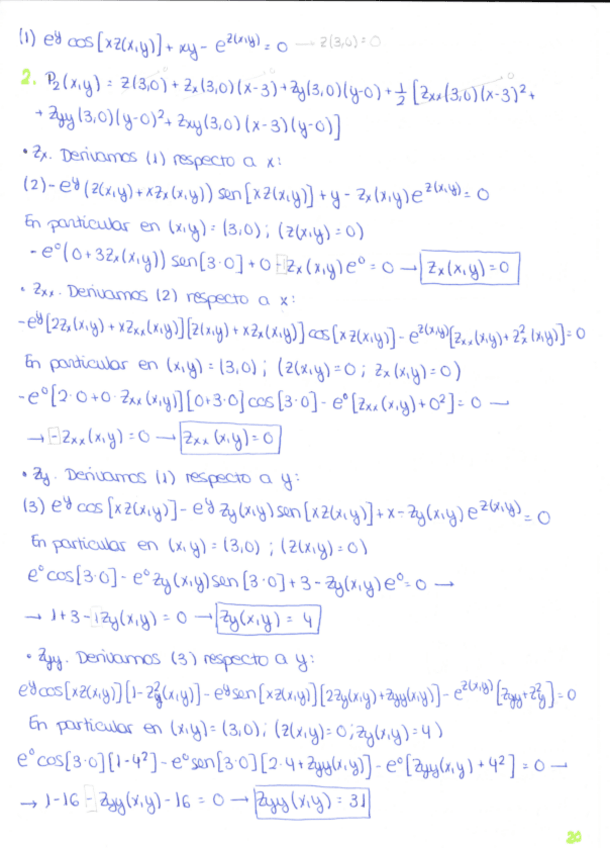 (1) e^y cos[xz(x,y)] + xy - e^{z(x,y)} = 0 → z(3,0) = 0
2. P₂(x,y) = z(3,0) + zₓ(3,0)(x-3) + z_y(3,0)(y-0) + 1/2 [zₓₓ(3,0)(x-3)² +
+ z_yy(3,0)(y-0)² + z_xy(3,0)(x-3)(y-0)]
• zₓ. Derivamos (1) respecto a x:
(2) - e^y (z(x,y) + xzₓ(x,y)) sen[xz(x,y)] + y - zₓ(x,y) e^{z(x,y)} = 0
En particular en (x,y) = (3,0); (z(x,y) = 0)
- e⁰(0 + 3zₓ(x,y)) sen[3·0] + 0 - zₓ(x,y) e⁰ = 0 → zₓ(x,y) = 0
• zₓₓ. Derivamos (2) respecto a x:
- e^y[2zₓ(x,y) + xzₓₓ(x,y)][z(x,y) + xzₓ(x,y)] cos[xz(x,y)] - e^{z(x,y)}[zₓₓ(x,y) + zₓ²(x,y)] = 0
En particular en (x,y) = (3,0); (z(x,y) = 0; zₓ(x,y) = 0)
- e⁰[2·0 + 0·zₓₓ(x,y)][0 + 3·0] cos[3·0] - e⁰[zₓₓ(x,y) + 0²] = 0 →
→ - zₓₓ(x,y) = 0 → zₓₓ(x,y) = 0
• z_y. Derivamos (1) respecto a y:
(3) e^y cos[xz(x,y)] - e^y z_y(x,y) sen[xz(x,y)] + x - z_y(x,y) e^{z(x,y)} = 0
En particular en (x,y) = (3,0); (z(x,y) = 0)
e⁰ cos[3·0] - e⁰ z_y(x,y) sen[3·0] + 3 - z_y(x,y) e⁰ = 0 →
→ 1 + 3 - 1z_y(x,y) = 0 → z_y(x,y) = 4
• z_yy. Derivamos (3) respecto a y:
e^y cos[xz(x,y)][1 - z_y²(x,y)] - e^y sen[xz(x,y)][2z_y(x,y) + z_yy(x,y)] - e^{z(x,y)}[z_yy + z_y²] = 0
En particular en (x,y) = (3,0); (z(x,y) = 0; z_y(x,y) = 4)
e⁰ cos[3·0][1 - 4²] - e⁰ sen[3·0][2·4 + z_yy(x,y)] - e⁰[z_yy(x,y) + 4²] = 0 →
→ 1 - 16 - z_yy(x,y) - 16 = 0 → z_yy(x,y) = 31
20